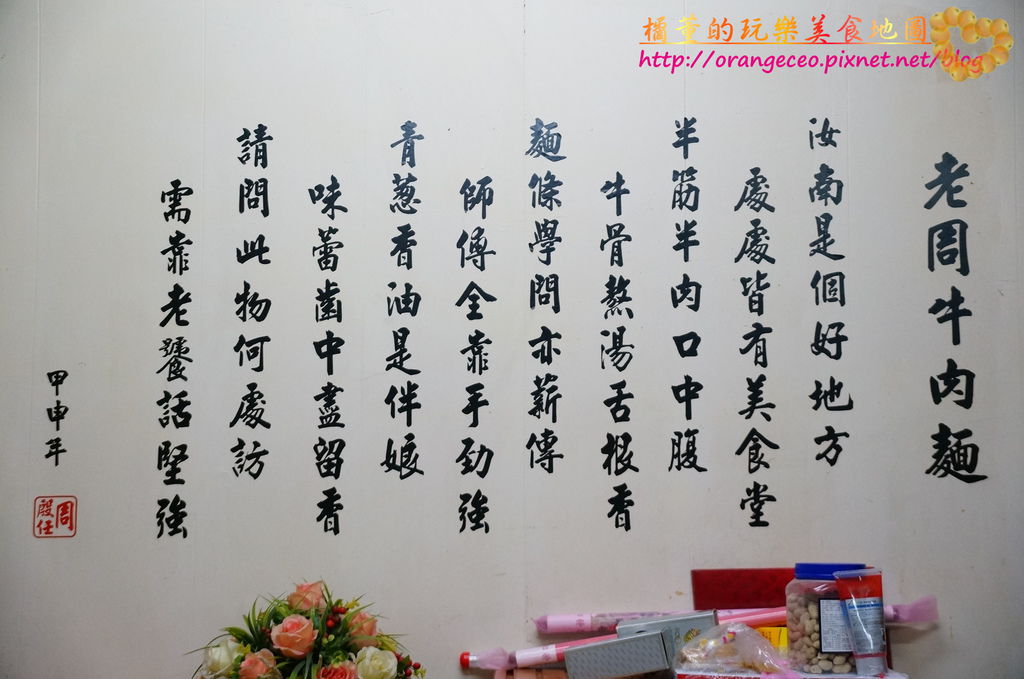 橘董的玩樂美食地圖
http://orangeceo.pixnet.net/blog
老周牛肉麵
汝南是個好地方
處處皆有美食堂
半筋半肉口中腹
牛骨熬湯舌根香
麵條學問亦薪傳
師傅全靠手勁強
青蔥香油是伴娘
味蕾齒中盡留香
請問此物何處訪
需靠老饕話堅強
甲申年
周殿任